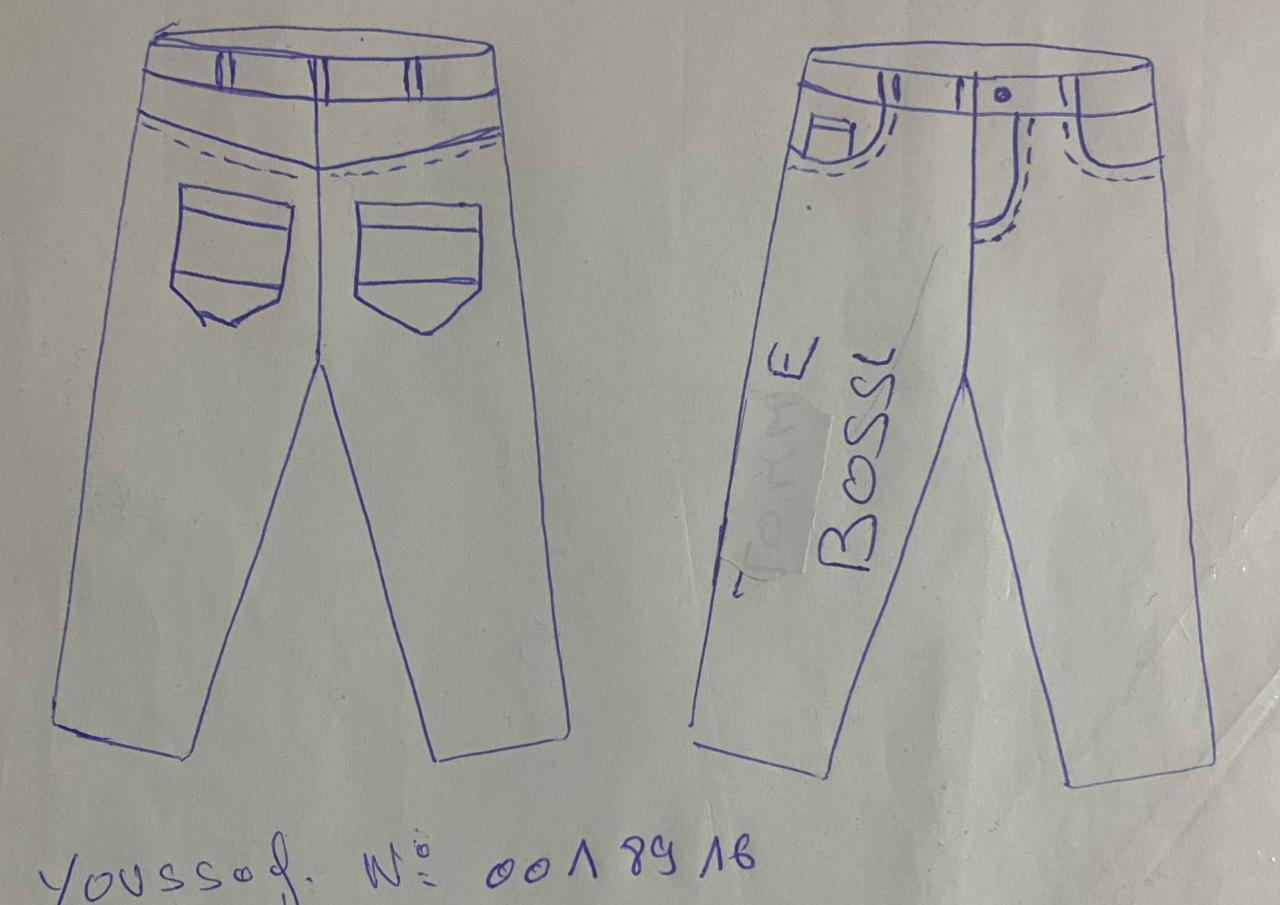 BOSSL
Youssof. N°: 0018916